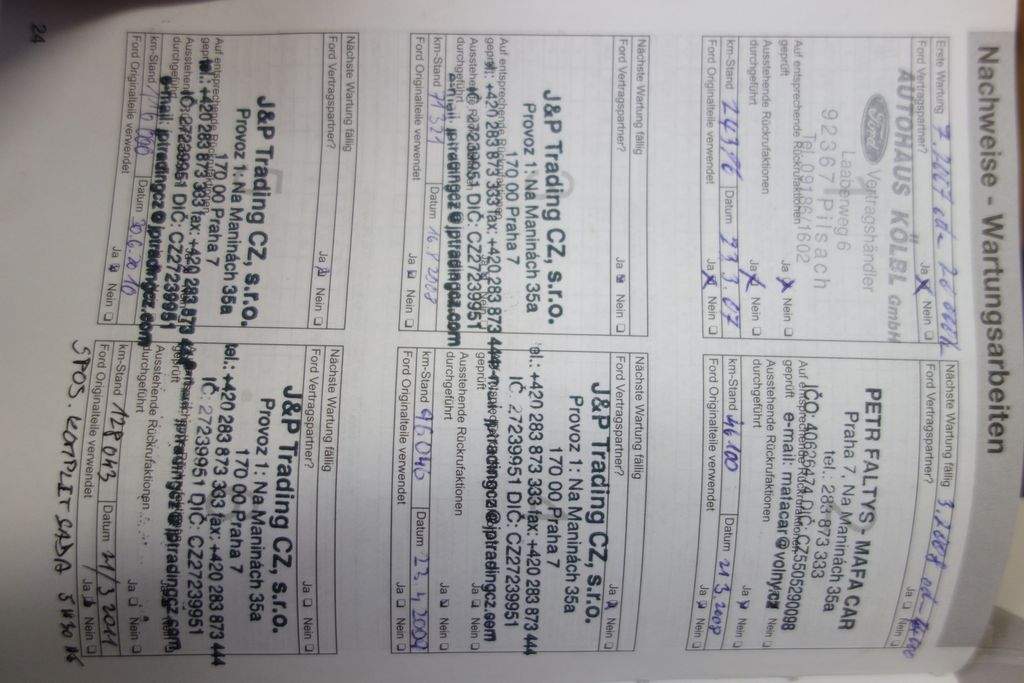 Nachweise - Wartungsarbeiten
Erste Wartung
Ford Vertragspartner? Ja Nein
AUTOHAUS KÖLBL GmbH
Ford Vertragshändler
Laaberweg 6
92367 Pilsach
Tel. 09186/1602
Auf entsprechende Rückrufaktionen
geprüft Ja Nein
Ausstehende Rückrufaktionen
durchgeführt Ja Nein
km-Stand 24376 Datum 23.3.07
Ford Originalteile verwendet Ja Nein
Nächste Wartung fällig 3.2008
Ford Vertragspartner? Ja Nein
PETR FALTYS - MAFA CAR
Praha 7, Na Maninách 35a
tel.: 283 873 333
IČO: 40826474 DIČ: CZ5505290098
e-mail: matacar@volny.cz
Auf entsprechende Rückrufaktionen
geprüft Ja Nein
Ausstehende Rückrufaktionen
durchgeführt Ja Nein
km-Stand 46100 Datum 21.3.2008
Ford Originalteile verwendet Ja Nein
Nächste Wartung fällig
Ford Vertragspartner? Ja Nein
J&P Trading CZ, s.r.o.
Provoz 1: Na Maninách 35a
170 00 Praha 7
tel.: +420 283 873 333 fax: +420 283 873 444
IČ: 27239951 DIČ: CZ27239951
e-mail: jptradingcz@jptradingcz.com
Auf entsprechende Rückrufaktionen
geprüft Ja Nein
Ausstehende Rückrufaktionen
durchgeführt Ja Nein
km-Stand 71321 Datum
Ford Originalteile verwendet Ja Nein
Nächste Wartung fällig
Ford Vertragspartner? Ja Nein
J&P Trading CZ, s.r.o.
Provoz 1: Na Maninách 35a
170 00 Praha 7
tel.: +420 283 873 333 fax: +420 283 873 444
IČ: 27239951 DIČ: CZ27239951
e-mail: jptradingcz@jptradingcz.com
geprüft Ja Nein
Ausstehende Rückrufaktionen
durchgeführt Ja Nein
km-Stand 96.040 Datum 22.4.2009
Ford Originalteile verwendet Ja Nein
Nächste Wartung fällig
Ford Vertragspartner? Ja Nein
J&P Trading CZ, s.r.o.
Provoz 1: Na Maninách 35a
170 00 Praha 7
tel.: +420 283 873 333 fax: +420 283 873 444
IČ: 27239951 DIČ: CZ27239951
e-mail: jptradingcz@jptradingcz.com
Auf entsprechende Rückrufaktionen
geprüft
Ausstehende Rückrufaktionen
durchgeführt
km-Stand Datum 30.6.2010
Ford Originalteile verwendet Ja Nein
Nächste Wartung fällig
Ford Vertragspartner? Ja Nein
J&P Trading CZ, s.r.o.
Provoz 1: Na Maninách 35a
170 00 Praha 7
tel.: +420 283 873 333 fax: +420 283 873 444
IČ: 27239951 DIČ: CZ27239951
jptradingcz@jptradingcz.com
geprüft
Ausstehende Rückrufaktionen
durchgeführt Ja Nein
km-Stand 128043 Datum 21/3 2011
Ford Originalteile verwendet Ja Nein
24